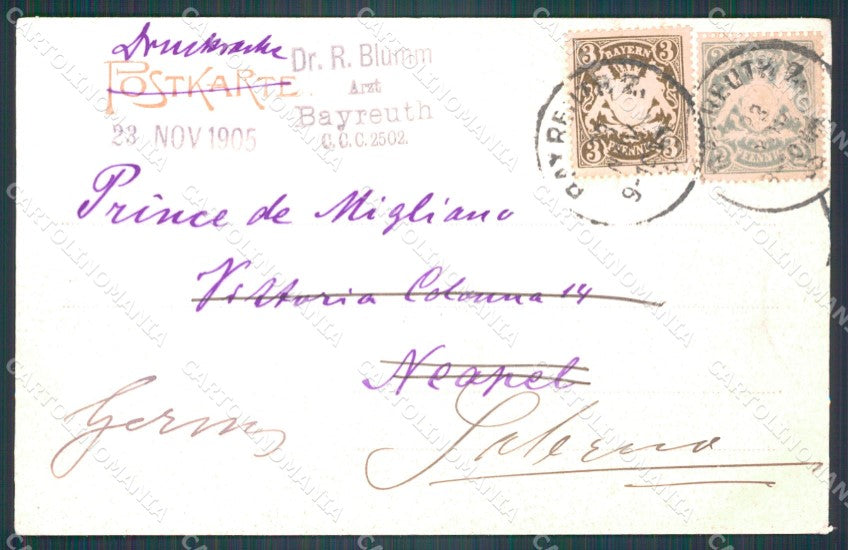 Drucksache
POSTKARTE
23 NOV 1905
Dr. R. Blumm
Arzt
Bayreuth
C.C.C.2502.
3 BAYERN 3
3 PFENNIG 3
BAYREUTH 2.
BAYREUTH 2.
Prince de Migliano
Vittoria Colonna 14
Neapel
Salerno
CARTOLINOMANIA